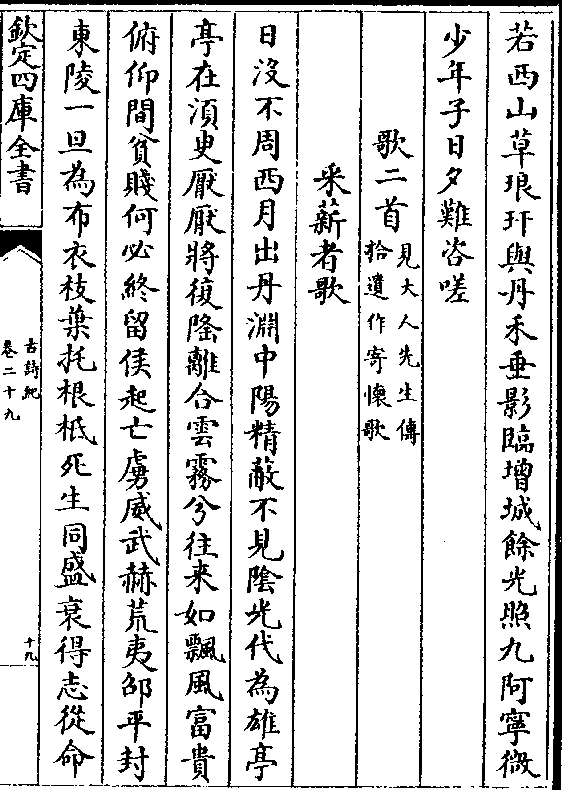 若西山草琅玕與丹禾垂影臨增城餘光照九阿寧微
少年子日夕難咨嗟
歌二首見大人先生傳
拾遺作寄懷歌
采薪者歌
日没不周西月出丹淵中陽精蔽不見隂光代為雄亭
亭在湏臾厭厭將復隆離合雲霧兮往来如飄風富貴
俯仰間貧賤何必終留侯起亡虜威武赫荒夷邵平封
東陵一旦為布衣枝葉托根柢死生同盛衰得志從命
欽定四庫全書
古詩紀
卷二十九
十九